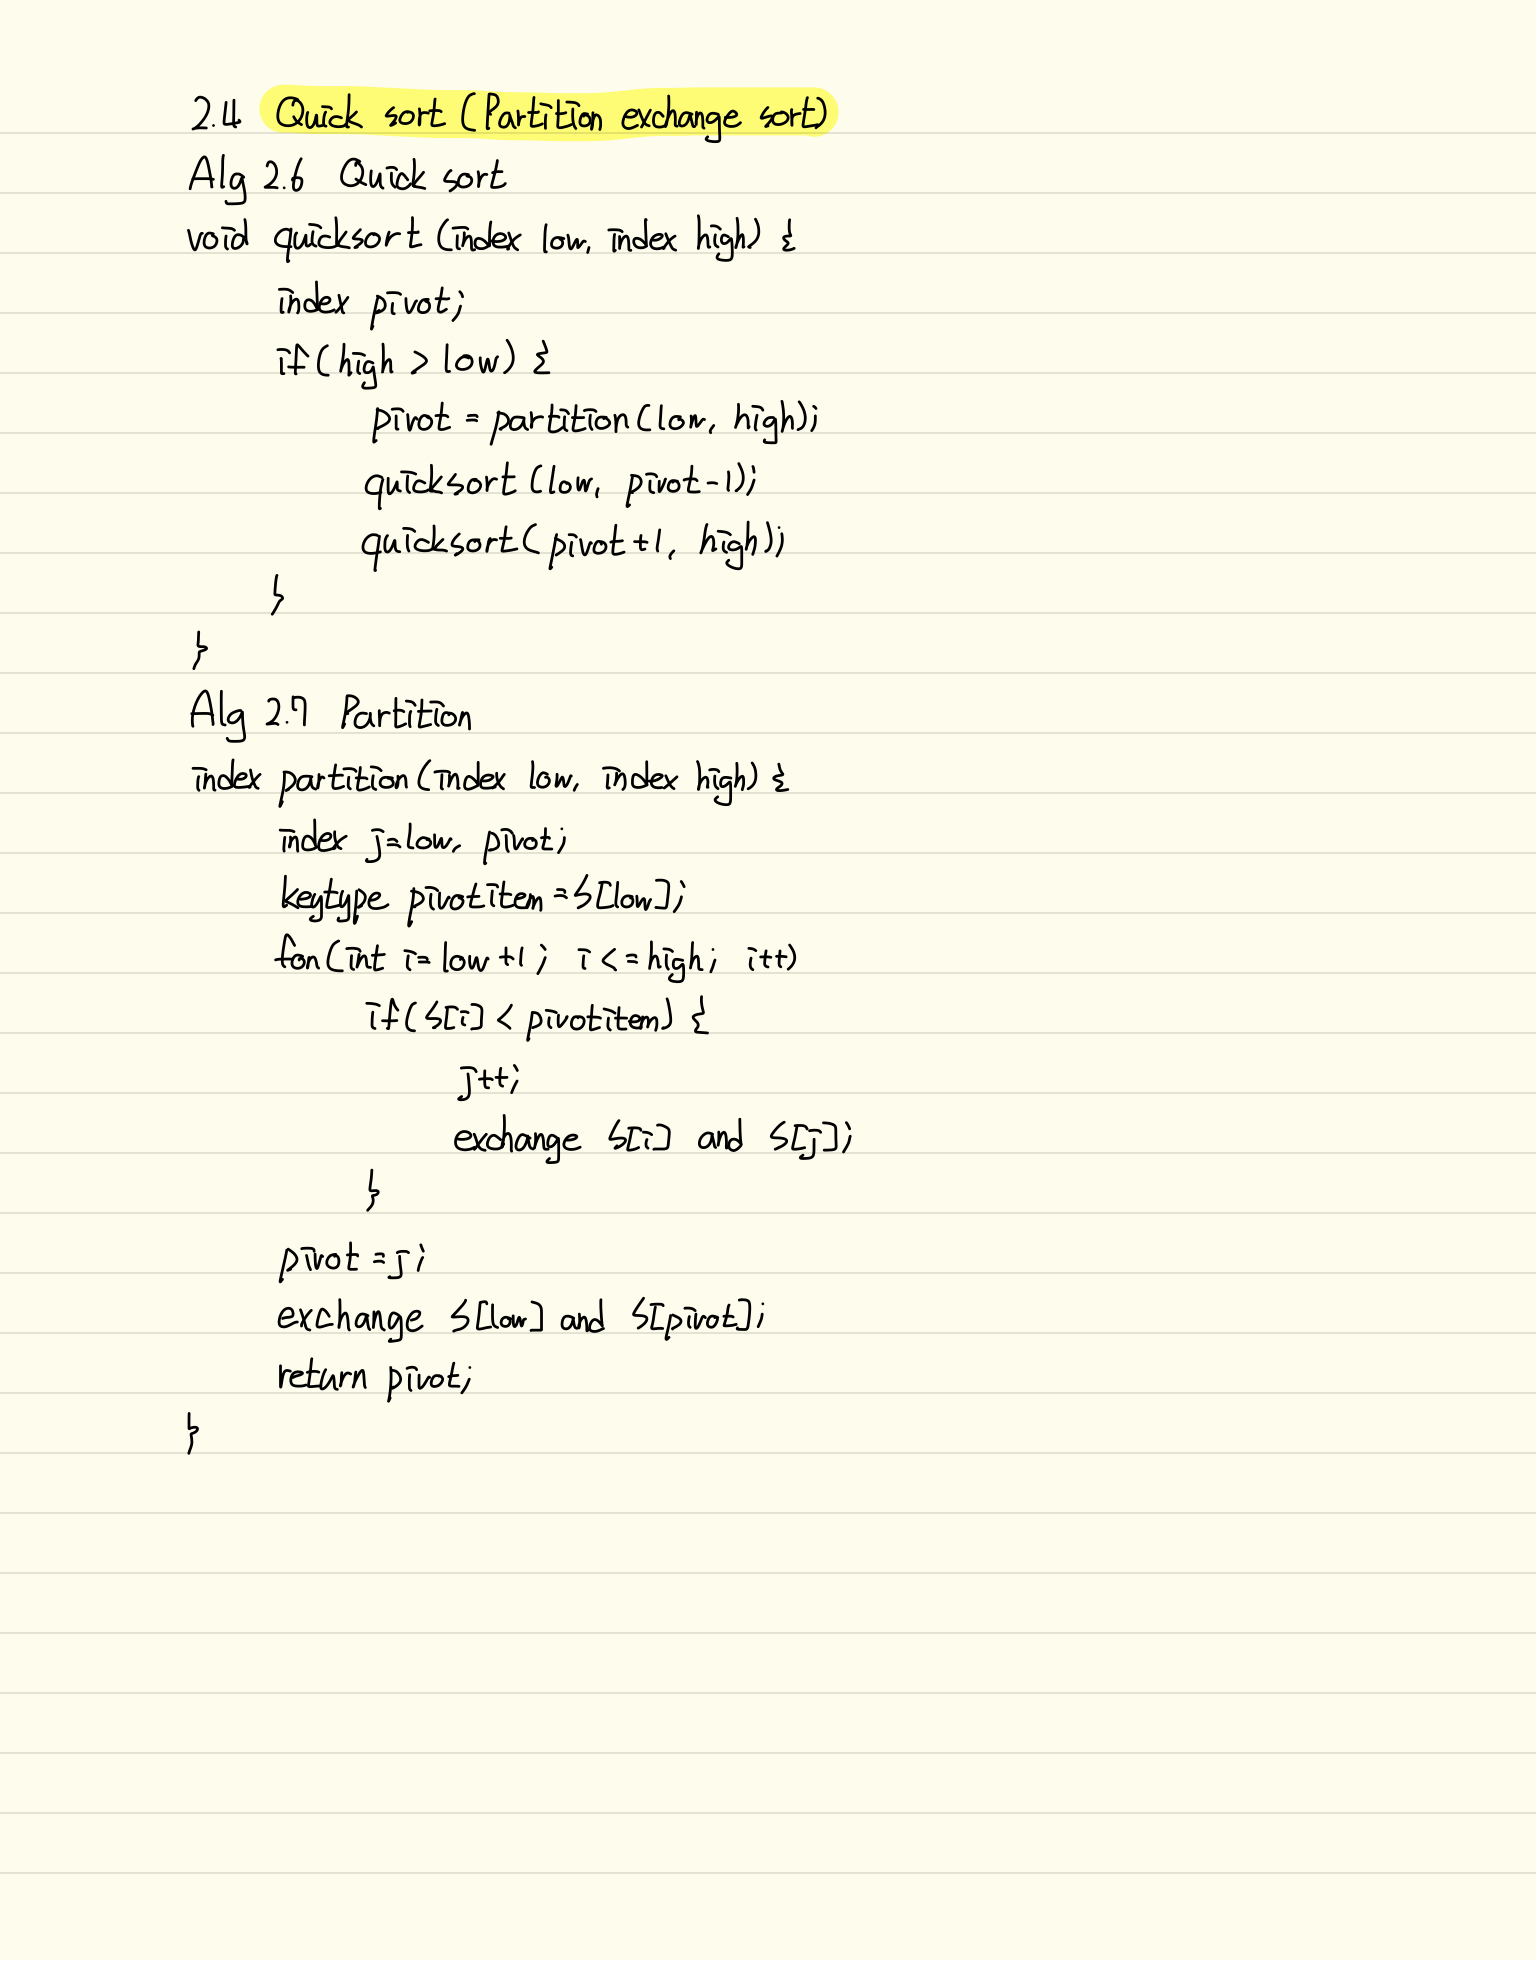 2.4 Quick sort (Partition exchange sort)
Alg 2.6 Quick sort
void quicksort (index low, index high) {
index pivot;
if (high > low) {
pivot = partition (low, high);
quicksort (low, pivot-1);
quicksort (pivot+1, high);
}
}
Alg 2.7 Partition
index partition (index low, index high) {
index j=low, pivot;
keytype pivotitem = S[low];
for (int i=low+1; i<=high; i++)
if (S[i] < pivotitem) {
j++;
exchange S[i] and S[j];
}
pivot = j;
exchange S[low] and S[pivot];
return pivot;
}